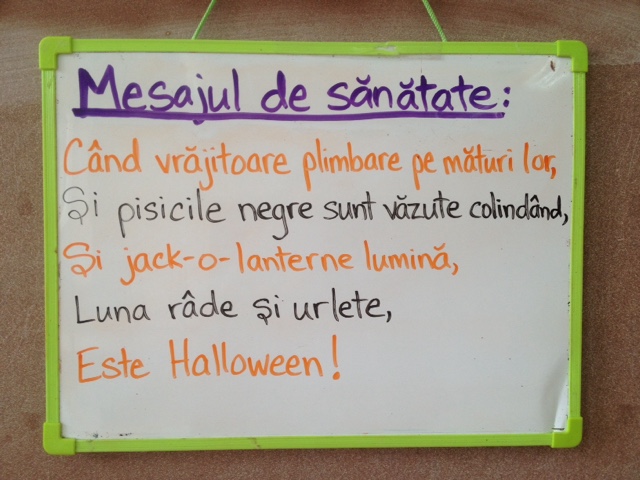 Mesajul de sănătate:
Când vrăjitoare plimbare pe mături lor,
Și pisicile negre sunt văzute colindând,
Și jack-o-lanterne lumină,
Luna râde și urlete,
Este Halloween!